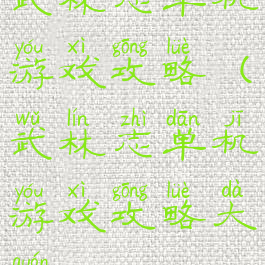 武林志单机
yóu xì gōng lüè
游戏攻略（
wǔ lín zhì dān jī
武林志单机
yóu xì gōng lüè dà
游戏攻略大
quán